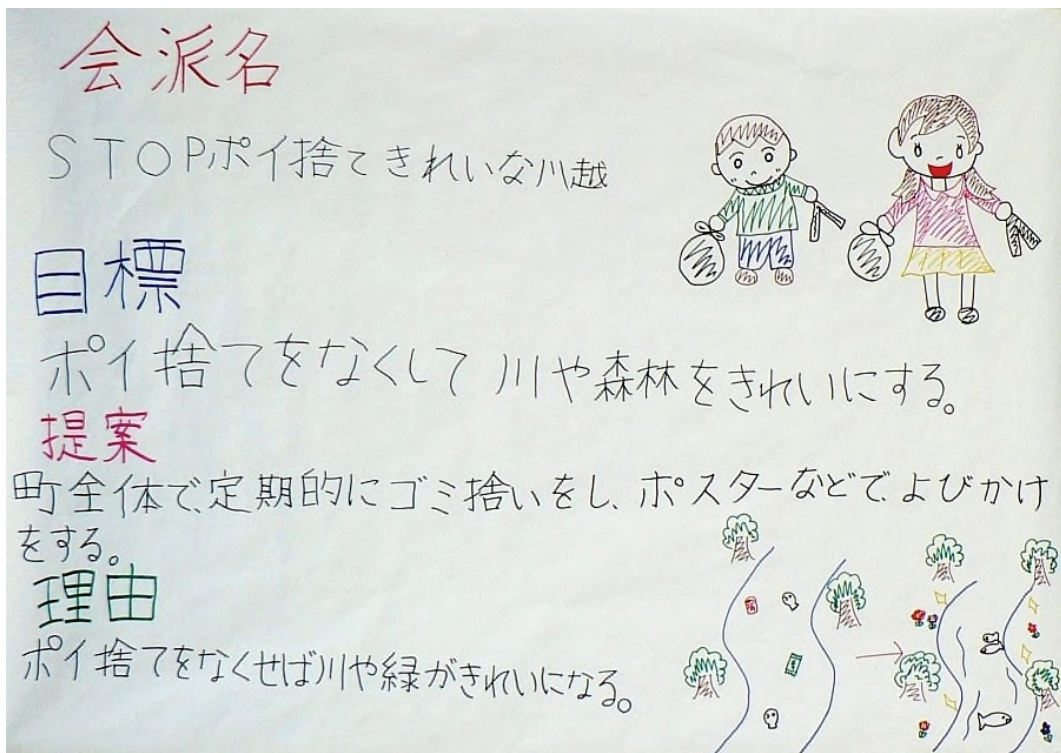 会派名
STOPポイ捨てきれいな川越
目標
ポイ捨てをなくして川や森林をきれいにする。
提案
町全体で、定期的にゴミ捨いをし、ポスターなどで、よびかけ
をする。
理由
ポイ捨てをなくせば川や緑がきれいになる。